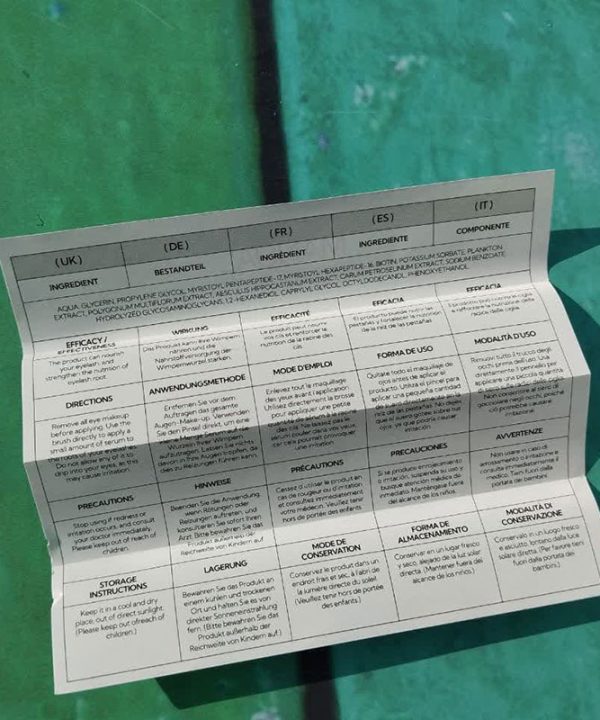 (UK) (DE) (FR) (ES) (IT)
INGREDIENT BESTANDTEIL INGRÉDIENT INGREDIENTE COMPONENTE
AQUA, GLYCERIN, PROPYLENE GLYCOL, MYRISTOYL PENTAPEPTIDE-17, MYRISTOYL HEXAPEPTIDE-16, BIOTIN, POTASSIUM SORBATE, PLANKTON
EXTRACT, POLYGONUM MULTIFLORUM EXTRACT, AESCULUS HIPPOCASTANUM EXTRACT, CARUM PETROSELINUM EXTRACT, SODIUM BENZOATE,
HYDROLYZED GLYCOSAMINOGLYCANS, 1,2-HEXANEDIOL, CAPRYLYL GLYCOL, OCTYLDODECANOL, PHENOXYETHANOL.
EFFICACY /
EFFECTIVENESS
The product can nourish
your eyelash and
strengthen the nutrition of
eyelash root.
WIRKUNG
Das Produkt kann Ihre Wimpern
nähren und die
Nährstoffversorgung der
Wimpernwurzel stärken.
EFFICACITÉ
Le produit peut nourrir
vos cils et renforcer la
nutrition de la racine des
cils.
EFICACIA
El producto puede nutrir las
pestañas y fortalecer la nutrición
de la raíz de las pestañas.
EFFICACIA
Il prodotto può nutrire le ciglia
e rafforzare la nutrizione della
radice delle ciglia.
DIRECTIONS
Remove all eye makeup
before applying. Use the
brush directly to apply a
small amount of serum to
the roots of your eyelashes.
Do not allow any of it to
drip into your eyes, as this
may cause irritation.
ANWENDUNGSMETHODE
Entfernen Sie vor dem
Auftragen das gesamte
Augen-Make-up. Verwenden
Sie den Pinsel direkt, um eine
kleine Menge Serum auf die
Wurzeln Ihrer Wimpern
aufzutragen. Lassen Sie nichts
davon in Ihre Augen tropfen, da
dies zu Reizungen führen kann.
MODE D'EMPLOI
Enlevez tout le maquillage
des yeux avant l'application.
Utilisez directement la brosse
pour appliquer une petite
quantité de sérum à la racine
des cils. Ne laissez pas le
sérum couler dans vos yeux,
car cela pourrait provoquer
une irritation.
FORMA DE USO
Quítate todo el maquillaje de
ojos antes de aplicar el
producto. Utiliza el pincel para
aplicar una pequeña cantidad
de suero directamente en la
raíz de las pestañas. No dejes
que el suero gotee sobre tus
ojos, ya que podría causar
irritación.
MODALITÀ D'USO
Rimuovi tutto il trucco degli
occhi prima dell'uso. Usa
direttamente il pennello per
applicare una piccola quantità
di siero alle radici delle ciglia.
Non consentire al siero di
gocciolare negli occhi, poiché
ciò potrebbe causare
irritazione.
PRECAUTIONS
Stop using if redness or
irritation occurs, and consult
your doctor immediately.
Please keep out of reach of
children.
HINWEISE
Beenden Sie die Anwendung,
wenn Rötungen oder
Reizungen auftreten, und
konsultieren Sie sofort Ihren
Arzt. Bitte bewahren Sie das
Produkt außerhalb der
Reichweite von Kindern auf.
PRÉCAUTIONS
Cessez d'utiliser le produit en
cas de rougeur ou d'irritation
et consultez immédiatement
votre médecin. Veuillez tenir
hors de portée des enfants.
PRECAUCIONES
Si se produce enrojecimiento
o irritación, suspenda su uso y
busque atención médica de
inmediato. Manténgase fuera
del alcance de los niños.
AVVERTENZE
Non usare in caso di
arrossamento o irritazione e
consulta immediatamente il
medico. Tieni fuori dalla
portata dei bambini.
STORAGE
INSTRUCTIONS
Keep it in a cool and dry
place, out of direct sunlight.
(Please keep out ofreach of
children.)
LAGERUNG
Bewahren Sie das Produkt an
einem kühlen und trockenen
Ort und halten Sie es von
direkter Sonneneinstrahlung
fern. (Bitte bewahren Sie das
Produkt außerhalb der
Reichweite von Kindern auf.)
MODE DE
CONSERVATION
Conservez le produit dans un
endroit frais et sec, à l'abri de
la lumière directe du soleil.
(Veuillez tenir hors de portée
des enfants.)
FORMA DE
ALMACENAMIENTO
Conservar en un lugar fresco
y seco, alejado de la luz solar
directa. (Mantener fuera del
alcance de los niños.)
MODALITÀ DI
CONSERVAZIONE
Conservalo in un luogo fresco
e asciutto, lontano dalla luce
solare diretta. (Per favore tieni
fuori dalla portata dei
bambini.)